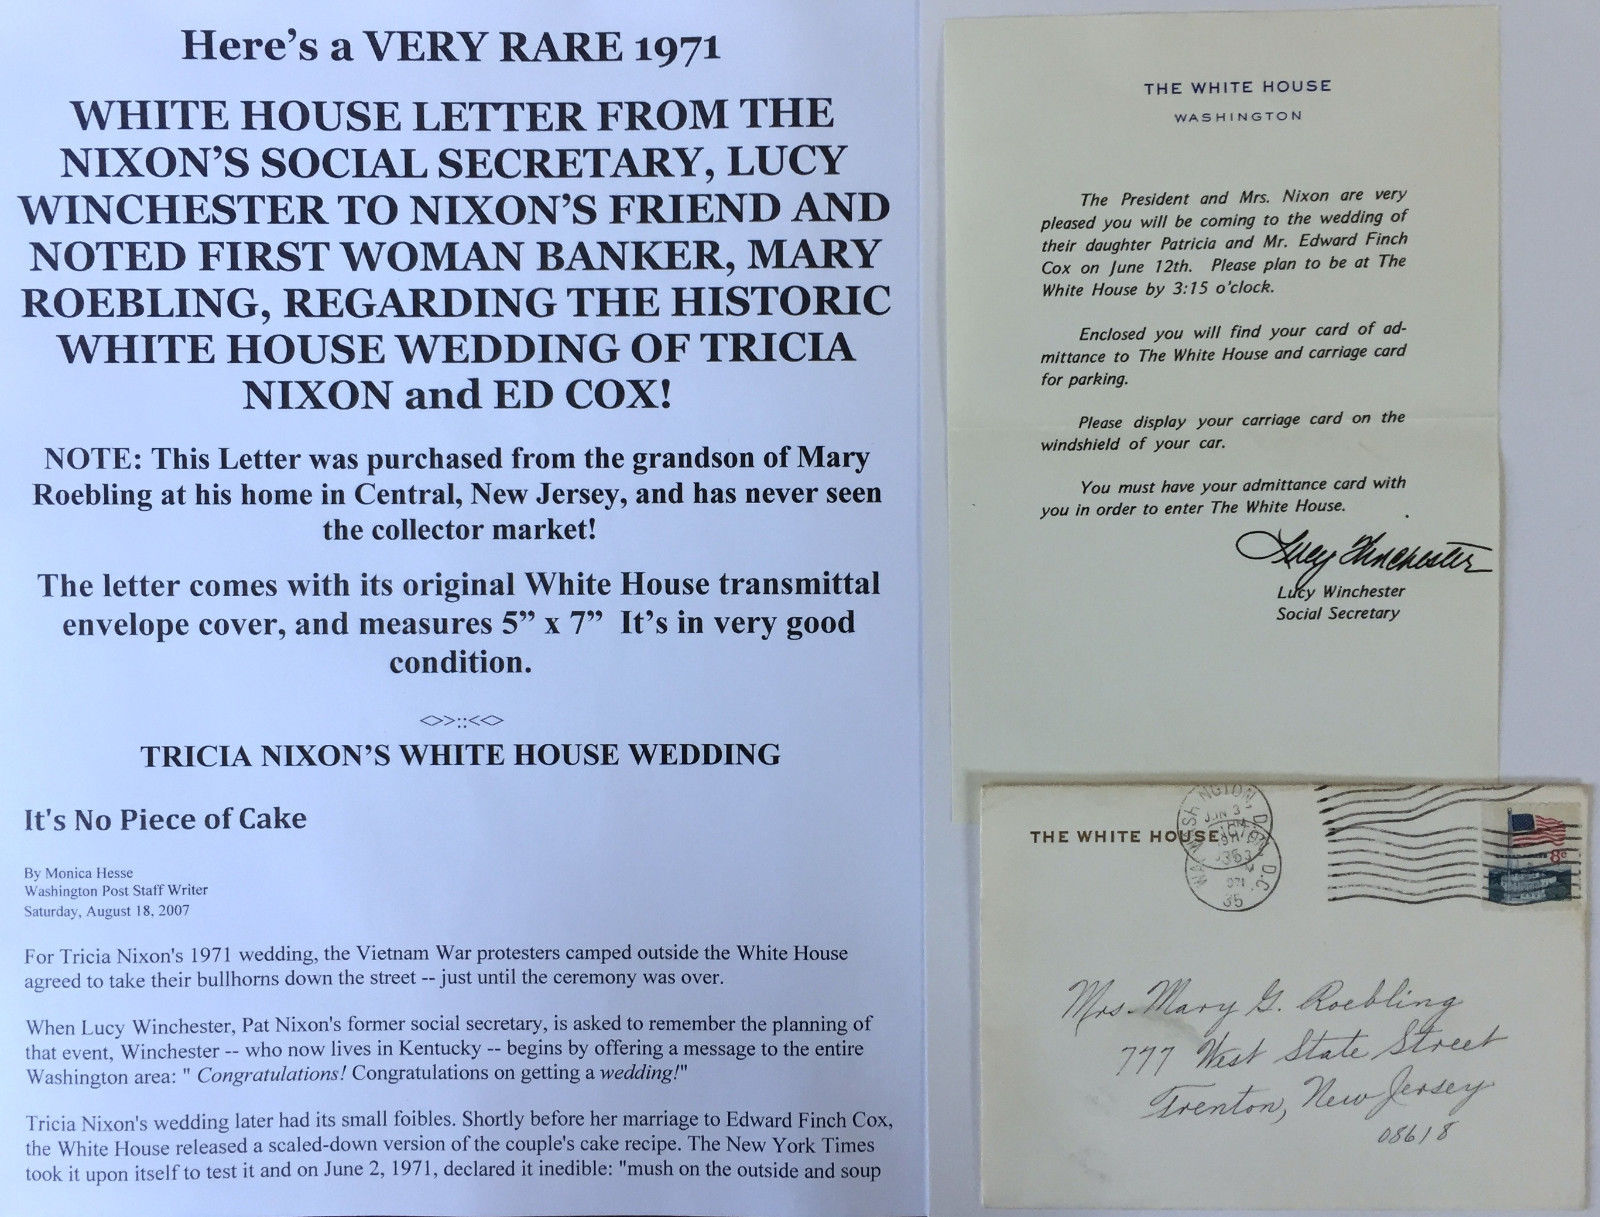 Here's a VERY RARE 1971
WHITE HOUSE LETTER FROM THE
NIXON'S SOCIAL SECRETARY, LUCY
WINCHESTER TO NIXON'S FRIEND AND
NOTED FIRST WOMAN BANKER, MARY
ROEBLING, REGARDING THE HISTORIC
WHITE HOUSE WEDDING OF TRICIA
NIXON and ED COX!
NOTE: This Letter was purchased from the grandson of Mary
Roebling at his home in Central, New Jersey, and has never seen
the collector market!
The letter comes with its original White House transmittal
envelope cover, and measures 5” x 7”  It's in very good
condition.
<>>::<<>
TRICIA NIXON'S WHITE HOUSE WEDDING
It's No Piece of Cake
By Monica Hesse
Washington Post Staff Writer
Saturday, August 18, 2007
For Tricia Nixon's 1971 wedding, the Vietnam War protesters camped outside the White House
agreed to take their bullhorns down the street -- just until the ceremony was over.
When Lucy Winchester, Pat Nixon's former social secretary, is asked to remember the planning of
that event, Winchester -- who now lives in Kentucky -- begins by offering a message to the entire
Washington area: " Congratulations! Congratulations on getting a wedding!"
Tricia Nixon's wedding later had its small foibles. Shortly before her marriage to Edward Finch Cox,
the White House released a scaled-down version of the couple's cake recipe. The New York Times
took it upon itself to test it and on June 2, 1971, declared it inedible: "mush on the outside and soup
THE WHITE HOUSE
WASHINGTON
The President and Mrs. Nixon are very
pleased you will be coming to the wedding of
their daughter Patricia and Mr. Edward Finch
Cox on June 12th. Please plan to be at The
White House by 3:15 o'clock.
Enclosed you will find your card of ad-
mittance to The White House and carriage card
for parking.
Please display your carriage card on the
windshield of your car.
You must have your admittance card with
you in order to enter The White House.
Lucy Winchester
Lucy Winchester
Social Secretary
THE WHITE HOUSE
WASHINGTON D.C.
JUN 3
8c
Mrs. Mary G. Roebling
777 West State Street
Trenton, New Jersey
08618